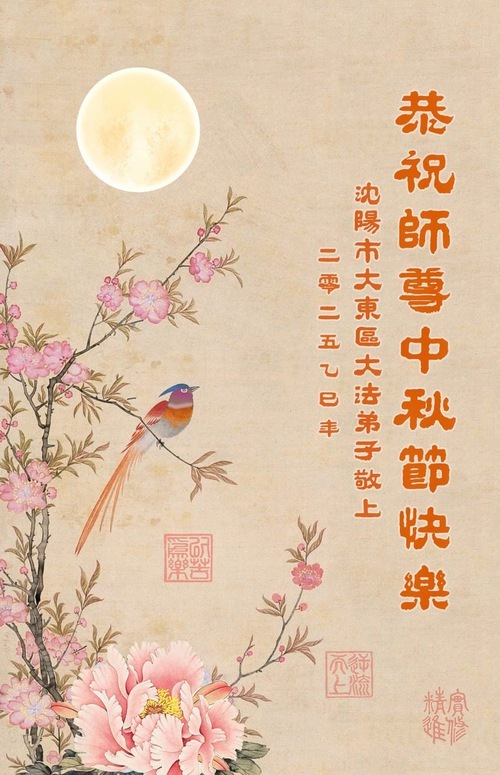 恭祝師尊中秋節快樂
沈陽市大東區大法弟子敬上
二零二五乙巳年
以苦為樂
逆流而上
實修
精進